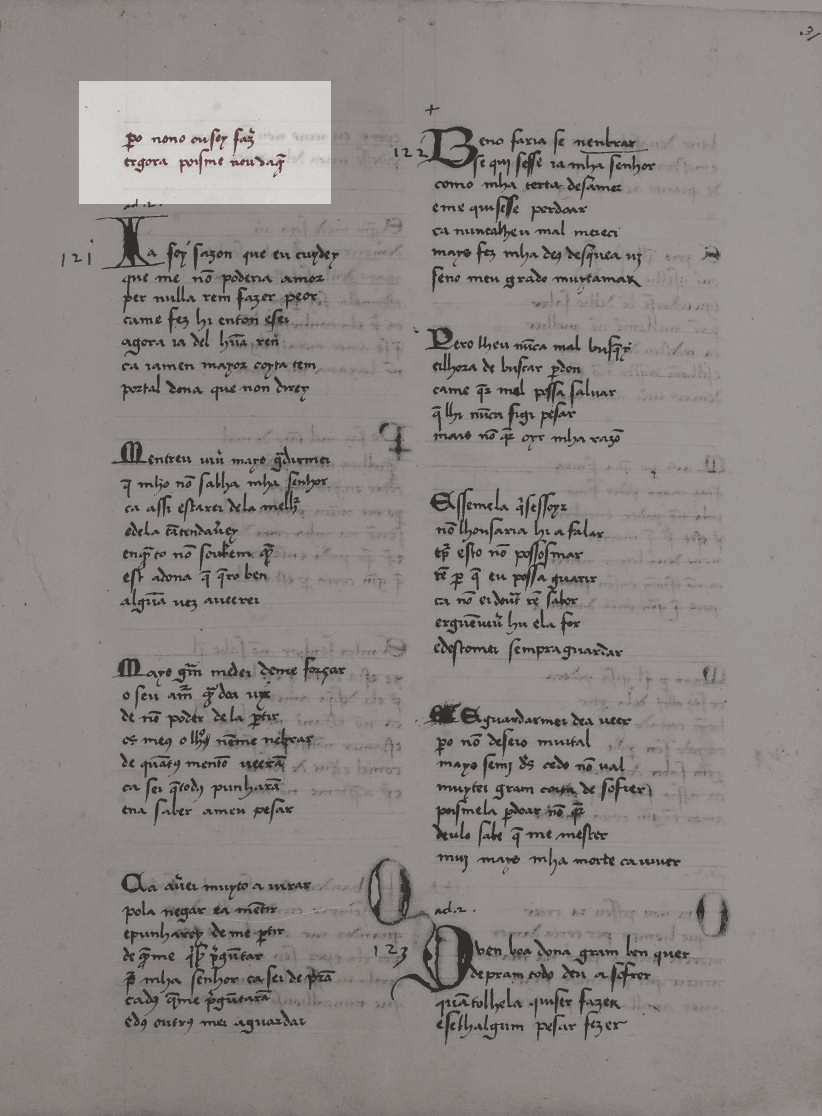 ꝑo nono ousey faz̃
ergora poisme nõu daq̃
ad. 2.
121
Ia foy sazon que eu cuydey
que me nõ poderia amor
per nulla rem fazer peor
came fez hi enton e sei
agora ia del hũa ren
ca iamen mayor coyta tem
portal dona que non direy
Mentreu uiu̾ mays g̃durmei
q̃ mho nõ sabha mha senhor
ca assi estarei dela melh̾
edela tãtendau̾ey
enq̃to nõ soub̾em q̃
est adona q̃ q̃ro ben
algũa uez aueerei
Mays g̃m medei deme forçar
o seu
de nõ poder dela ꝑtir
os meus olhos nẽme nẽbrar
de quãtꝯ mento ueerã
ca sei q̃todꝯ punharã
ena saber ameu pesar
Ca au̾ei muyto a uirar
pola negar ea mẽtir
epunharey de me ꝑtir
de q̃me q̃ser p̃gũtar
ꝑ mha senhor ca sei de p̃rã
cadꝯ q̃me p̃gũtarã
edꝯ outrꝯ mei aguardar
122
Beno faria se nenbrar
se qui sesse ia mha senhor
como mha torta desamor
eme quisesse perdoar
ca nuncalheu mal mereci
mays fez mha deꝯ desq̃ea ui
seno meu grado muytamar
Pero lheu nũca mal busq̃y
eilhora de buscar ꝑdon
came q̃r mel possa saluar
q̃lhi nũca figi pesar
mais nõ q̃r oyr mha razõ
E ssemela q̃sessoyr
nõ lhousaria hi a falar
nõ possosmar
rẽ ꝑ q̃ eu possa guarir
ca nõ ei dout̃ rẽ sabor
erguẽuiu̾ hu ela for
edestomei sempraguardar
E guardarmei dea ueer
ꝑo nõ desejo muital
mays semi dꝰs cedo nõ ual
muytei gram coita de sofrer
poismela ꝑdoar nõ q̃r
deulo sabe q̃ me mester
mui mays mha morte ca uiuer
ad. 2.
123
Quen boa dona gram ben quer
de pram todo deu a sofrer
quãtolhela quiser fazer
eselhalgum pesar fezer